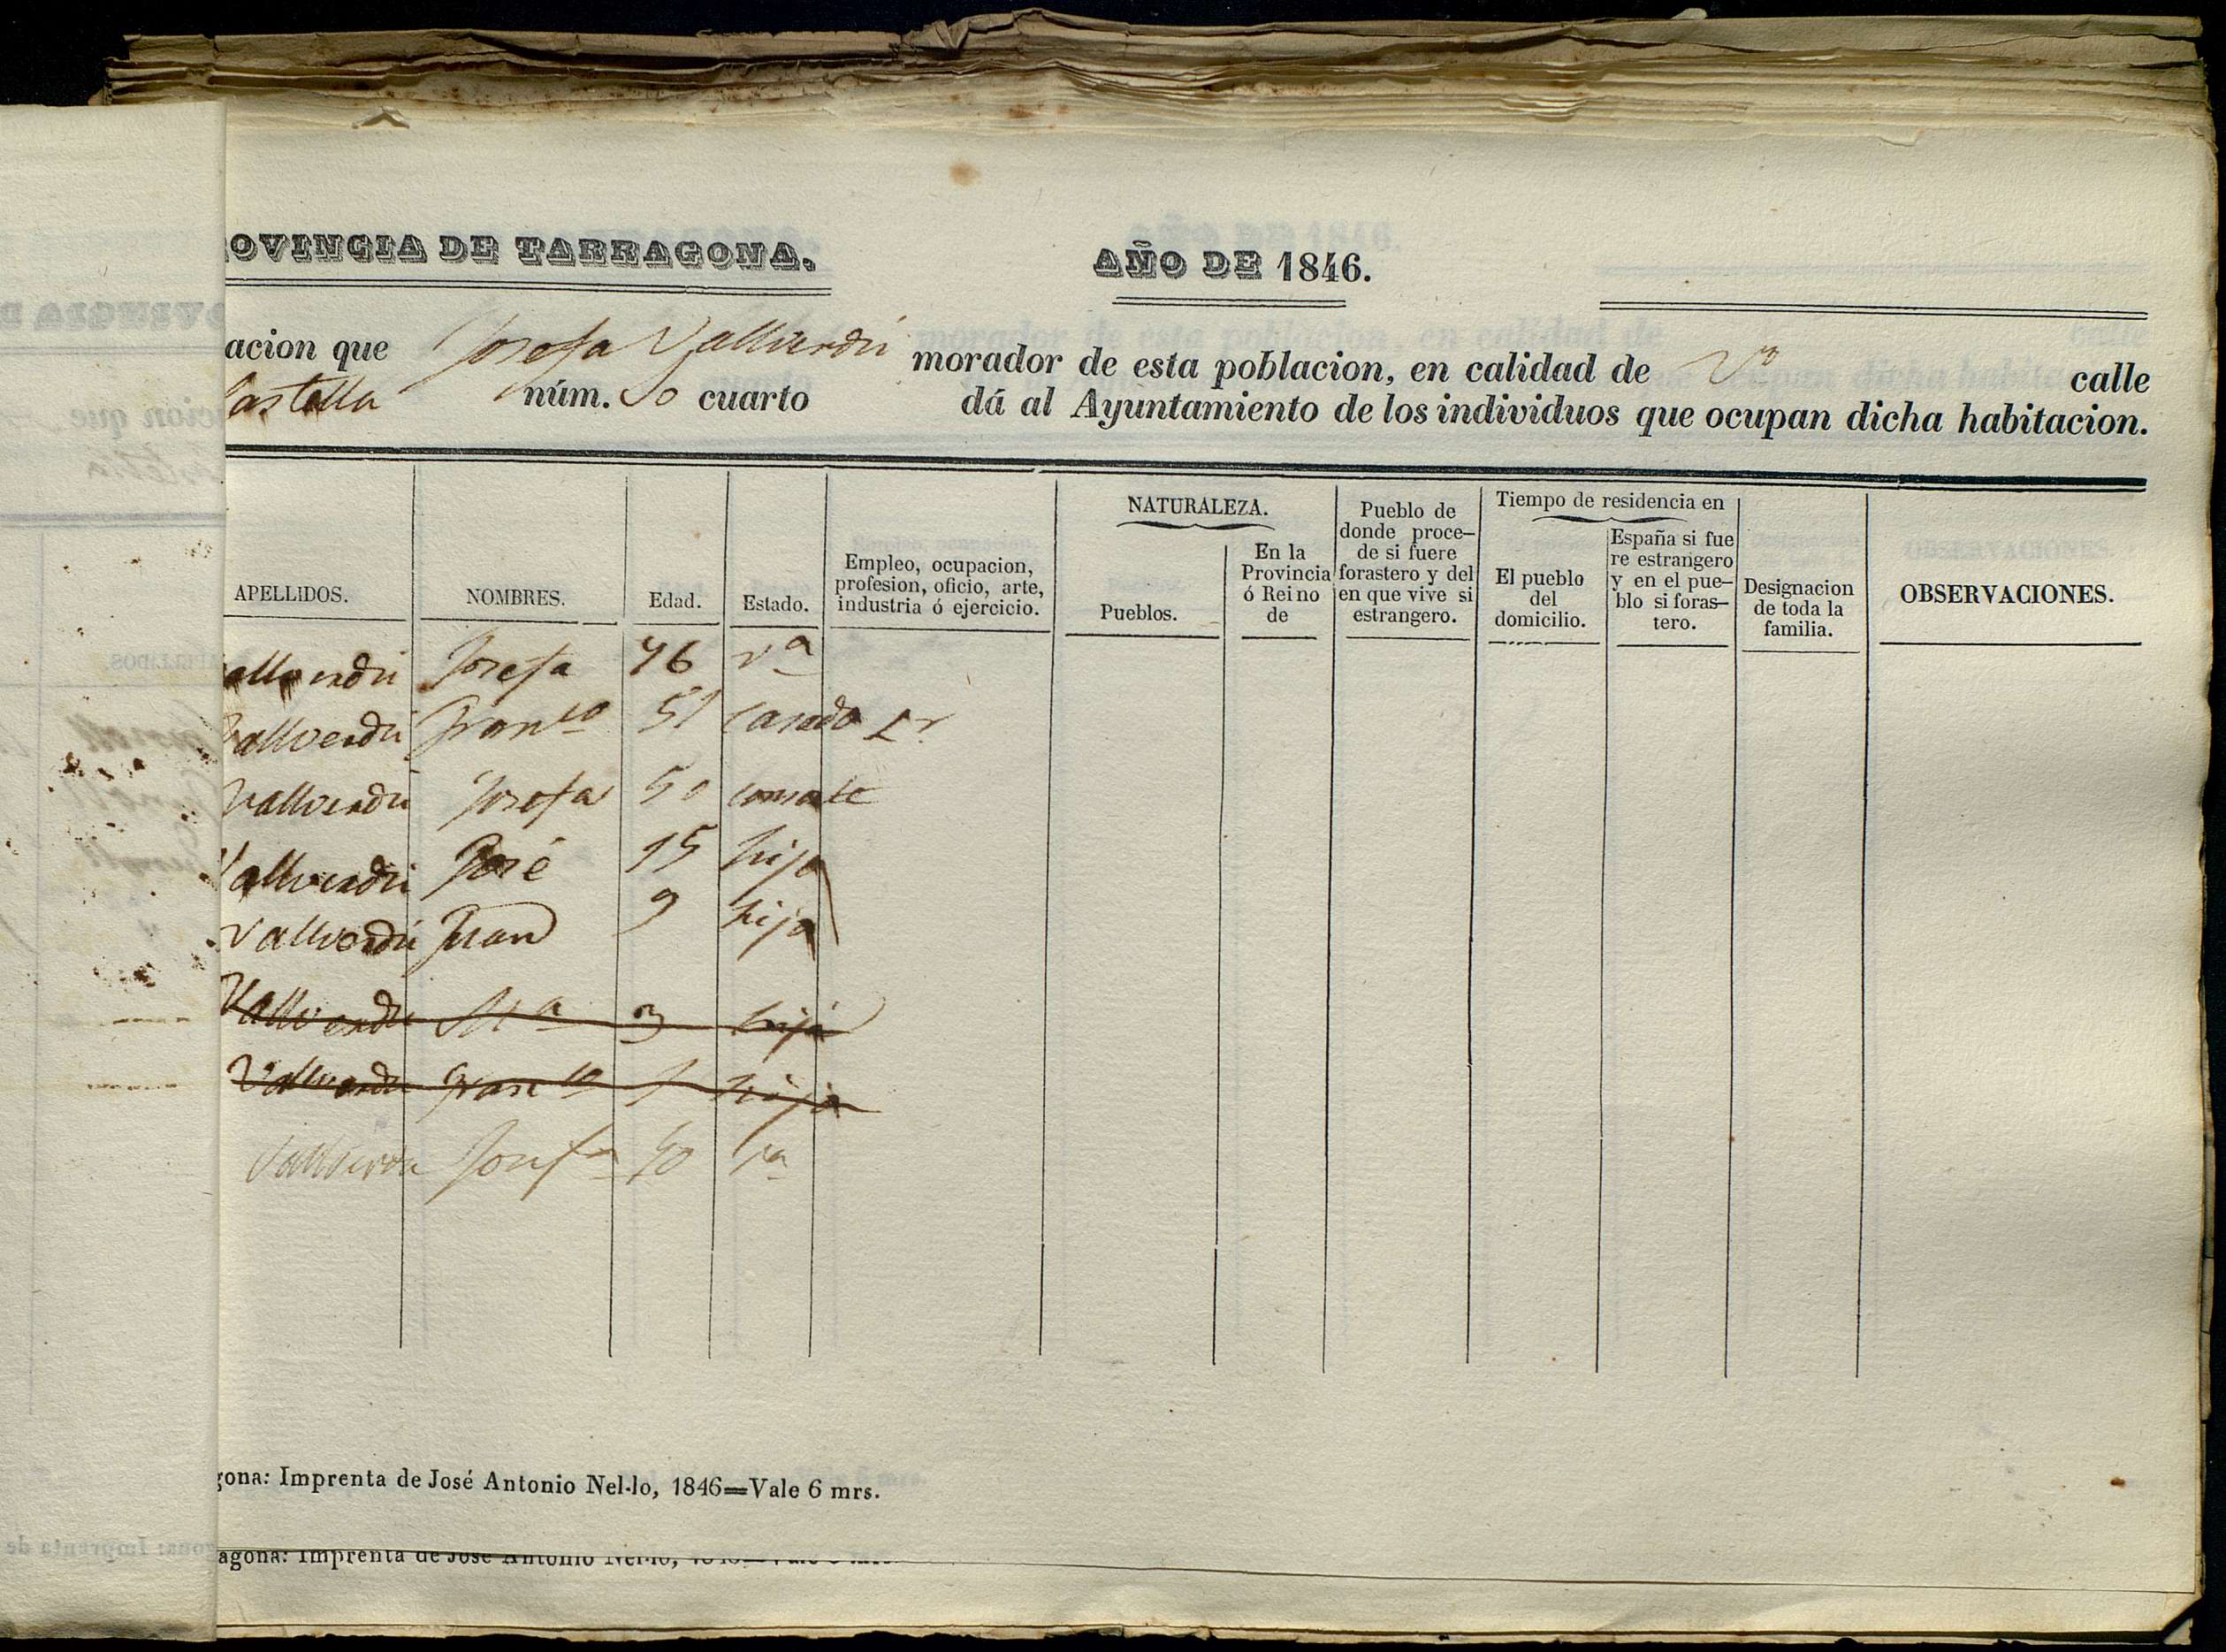 OVINCIA DE TARRAGONA. AÑO DE 1846.
acion que Josefa Vallverdú morador de esta poblacion, en calidad de Va calle
Castella núm. cuarto dá al Ayuntamiento de los individuos que ocupan dicha habitacion.
APELLIDOS. NOMBRES. Edad. Estado. Empleo, ocupacion, profesion, oficio, arte, industria ó ejercicio. NATURALEZA. Pueblos. En la Provincia ó Reino de Pueblo de donde proce- de si fuere forastero y del en que vive si estrangero. Tiempo de residencia en El pueblo del domicilio. España si fue re estrangero y en el pue- blo si foras- tero. Designacion de toda la familia. OBSERVACIONES.
allverdú Josefa 76 va
Vallverdú Franco 51 casado Lr
Vallverdú Josefa 50 consote
Vallverdú José 15 hijo
Vallverdú Juan 9 hijo
Vallverdú Ma 3 hija
Vallverdú Franco 1 hijo
Vallverdu Josefa 40 va
gona: Imprenta de José Antonio Nel·lo, 1846=Vale 6 mrs.
agona: Imprenta de José Antonio Nel·lo,